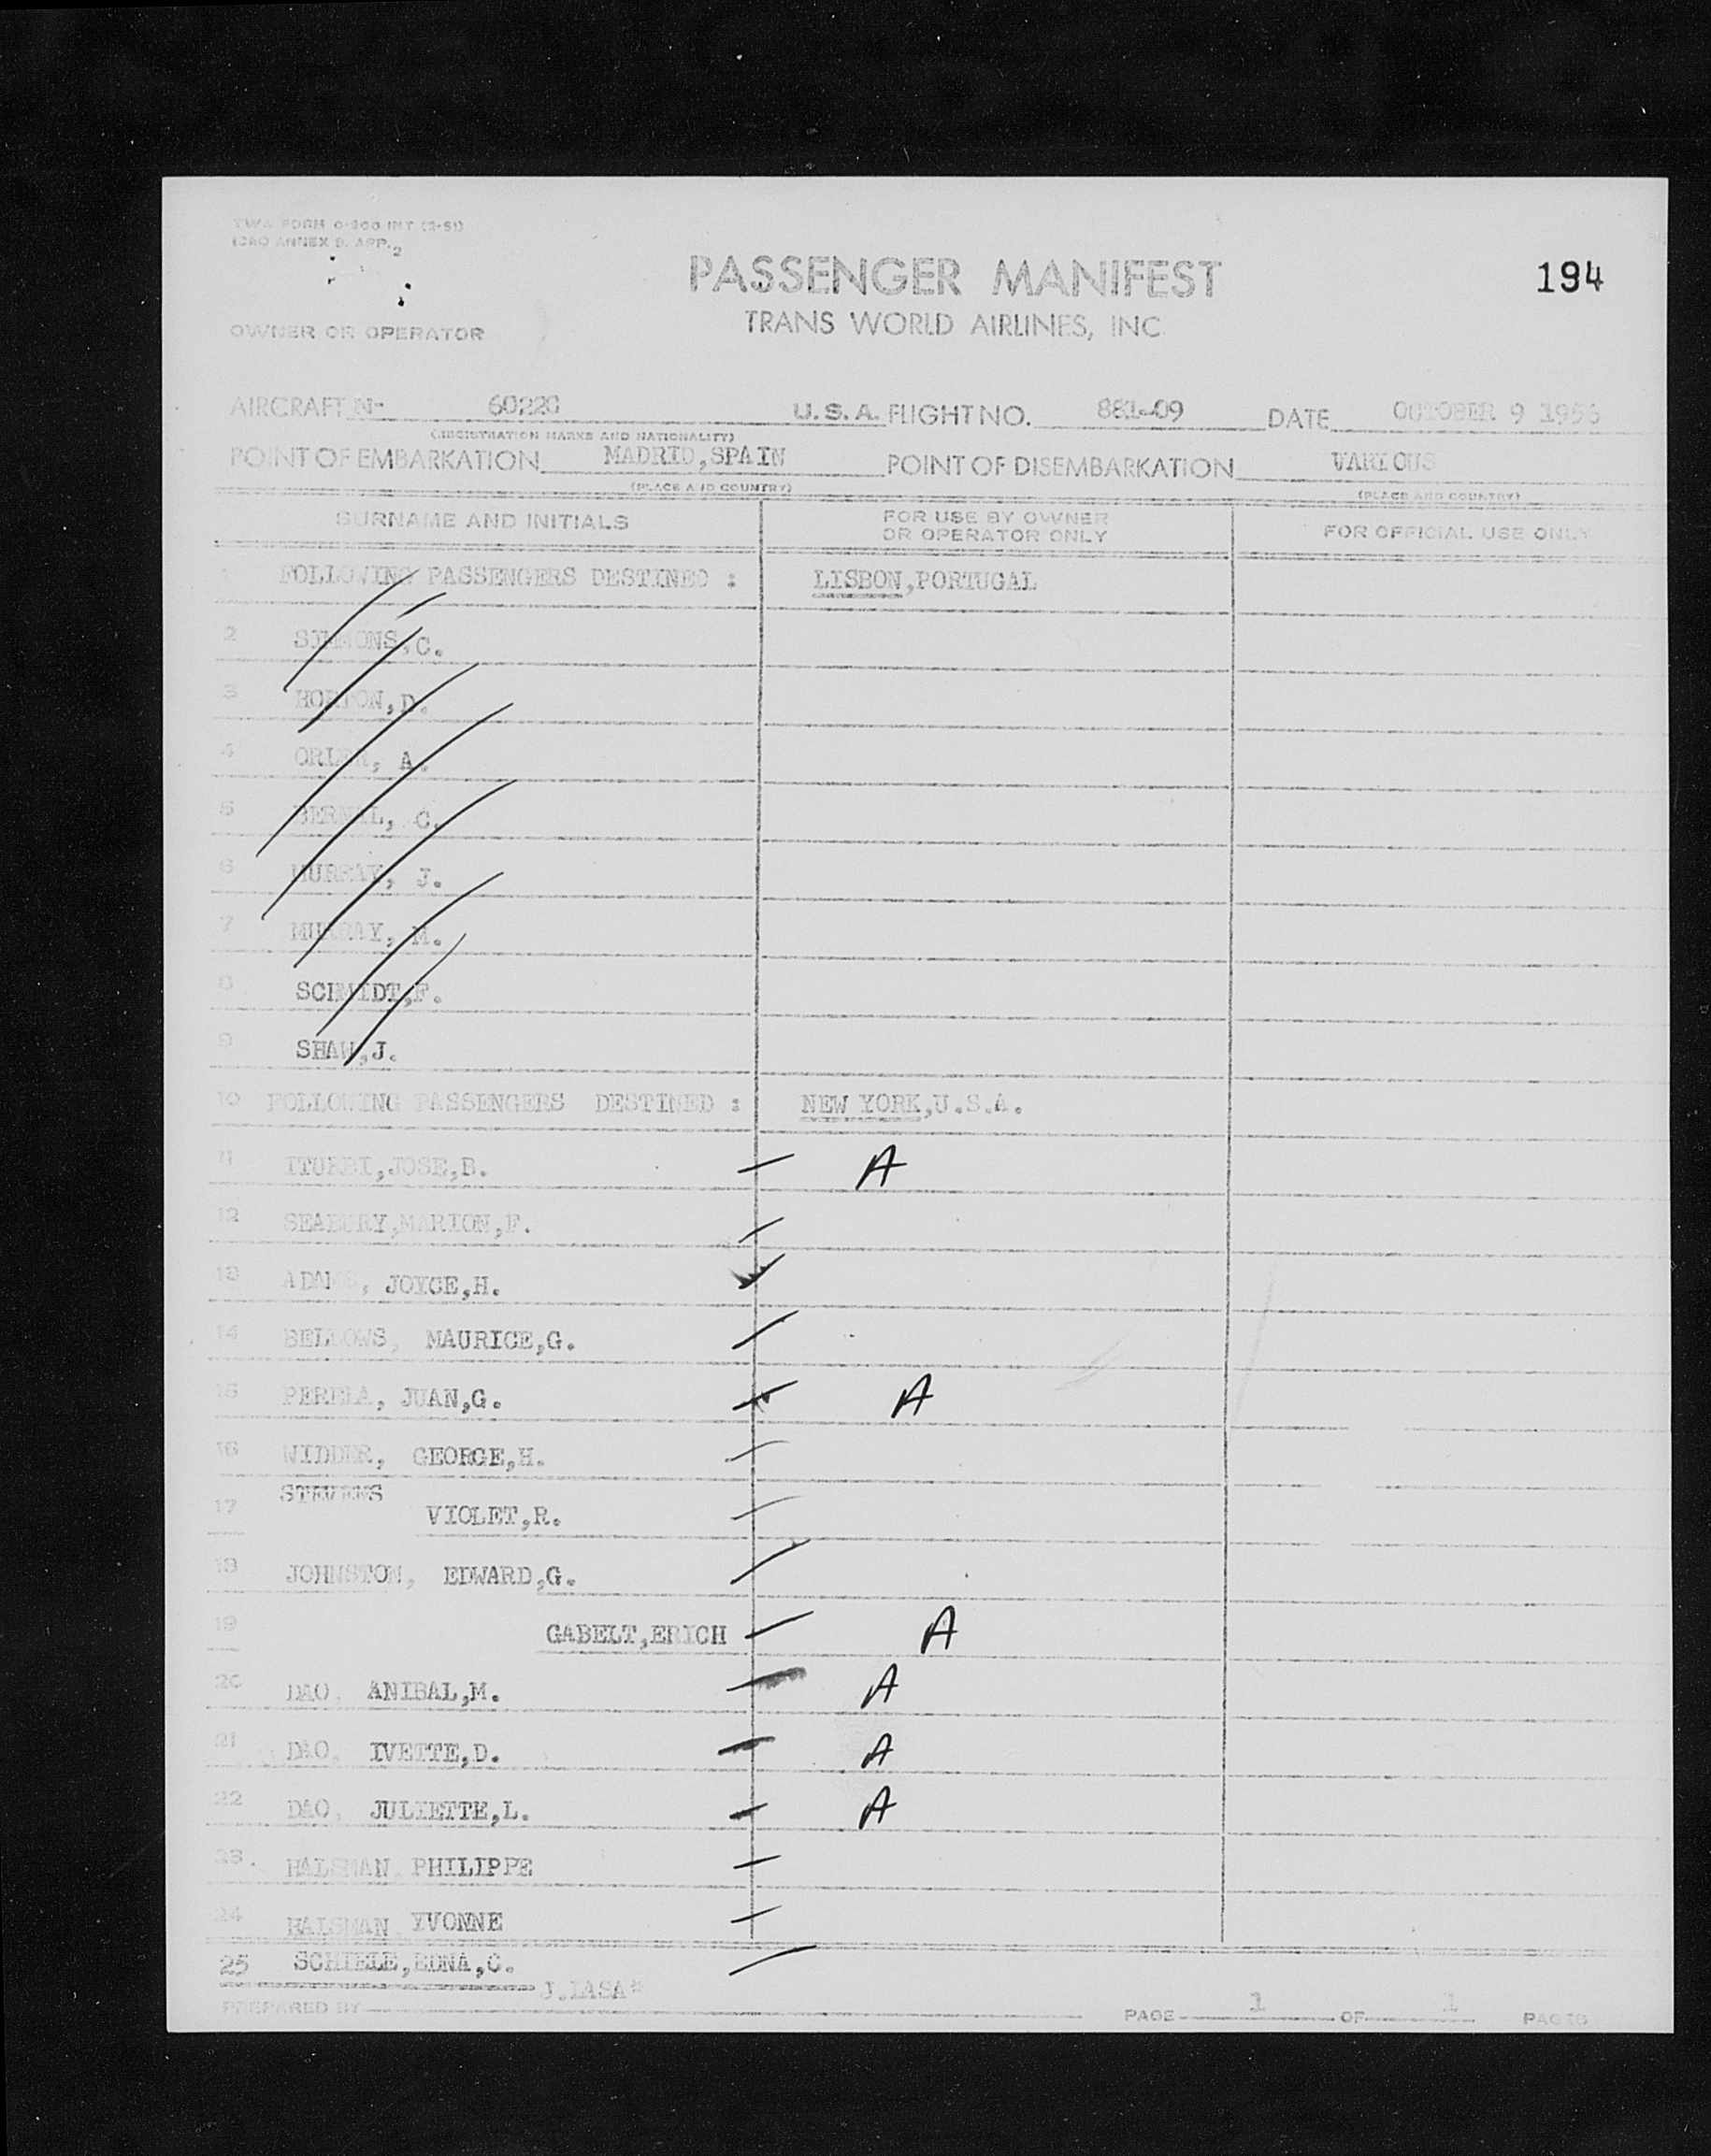 TWA FORM O-200 INT (2-51)
ICAO ANNEX 9. APP. 2
PASSENGER MANIFEST
194
TRANS WORLD AIRLINES, INC
OWNER OR OPERATOR
AIRCRAFT N- 6022C U.S.A. FLIGHT NO. 881-09 DATE OCTOBER 9 1956
(REGISTRATION MARKS AND NATIONALITY)
POINT OF EMBARKATION MADRID,SPAIN POINT OF DISEMBARKATION VARIOUS
(PLACE AND COUNTRY) (PLACE AND COUNTRY)
SURNAME AND INITIALS FOR USE BY OWNER OR OPERATOR ONLY FOR OFFICIAL USE ONLY
FOLLOWING PASSENGERS DESTINED : LISBON,PORTUGAL
2 SIMMONS,C.
3 HORTON,D.
4 A.
5 BERNAL, C.
6 MURRAY, J.
7 MURRAY, M.
8 SCHMIDT,F.
9 SHAW,J.
10 FOLLOWING PASSENGERS DESTINED : NEW YORK,U.S.A.
11 ITURBI,JOSE,B. A
12 SEABURY,MARION,F.
13 ADAMS, JOYCE,H.
14 BELLOWS, MAURICE,G.
15 JUAN,G. A
16 WIDDER, GEORGE,H.
STEVENS
17 VIOLET,R.
18 JOHNSTON, EDWARD,G.
19 GABELT,ERICH A
20 DAO, ANIBAL,M. A
21 DAO, IVETTE,D. A
22 DAO, JULIETTE,L. A
23. HALSMAN PHILIPPE
24 HALSMAN YVONNE
25 SCHIELE,EDNA,C.
J.LASA*
PREPARED BY PAGE 1 OF 1 PAGES